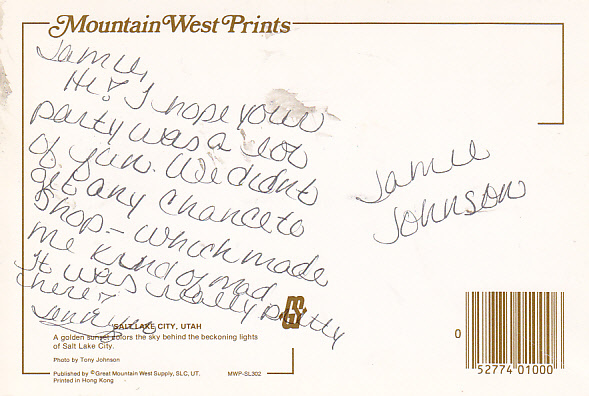 Mountain West Prints
Jamie,
Hi! I hope your
party was a lot
of fun. We didn't
get any chance to
shop - which made
me kind of mad.
It was really pretty
here!
Jamie
Johnson
SALT LAKE CITY, UTAH
A golden sunset colors the sky behind the beckoning lights
of Salt Lake City.
Photo by Tony Johnson
Published by ©Great Mountain West Supply, SLC, UT.
Printed in Hong Kong
MWP-SL302
0
52774 01000